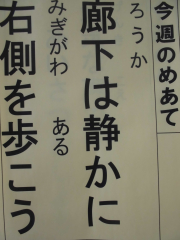 今週のめあて
ろうか
廊下は静かに
みぎがわ　ある
右側を歩こう